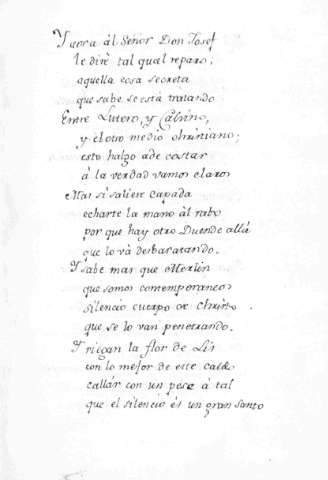 Y aora ál Señor Don Josef
le diré tal qual reparo;
aquella cosa secreta
que sabe se está tratando
Entre Lutero, y Calvino,
y el otro medio christiano;
esto halgo ade costar
á la verdad vamos claros
Mas si saliere capada
echarle la mano ál rabo
por que hay otro Duende allá
que lo vá desbaratando.
Y sabe mas que Merlin
que somos contemporaneos
silencio cuerpo de Christo
que se lo van penetrando.
Y riegan la flor de Lis
con lo mejor de este caldo
callár con un pese á tal
que el silencio és un gran santo